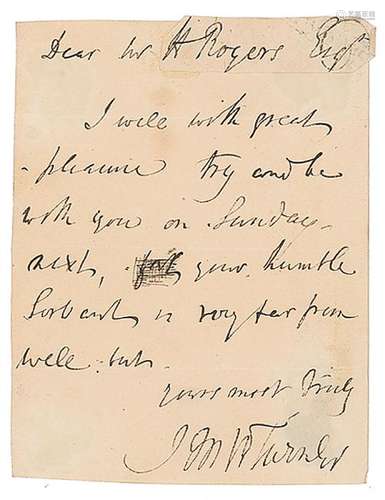 Dear Mr H Rogers Esqr
I well with great
pleasure try and be
with you on Sunday
next, your humble
Servant is very far from
well but
yours most truly
J M W Turner